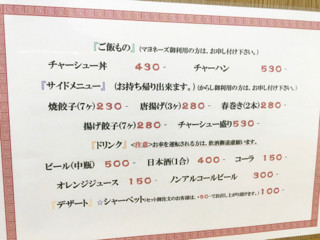 『ご飯もの』(マヨネーズ御利用の方は、お申し付け下さい。)
チャーシュー丼 430- チャーハン 530-
『サイドメニュー』(お持ち帰り出来ます。)(からし御利用の方は、お申し付け下さい。)
焼餃子(7ヶ)230- 唐揚げ(3ヶ)280- 春巻き(2本)280-
揚げ餃子(7ヶ)280- チャーシュー盛り530-
『ドリンク』<注意>お車を運転される方は、飲酒御遠慮願います。
ビール(中瓶) 500- 日本酒(1合) 400- コーラ 150-
オレンジジュース 150- ノンアルコールビール 300-
『デザート』☆シャーベット(セット御注文のお客様は、+50-でお召し上がり頂けます。) 100-